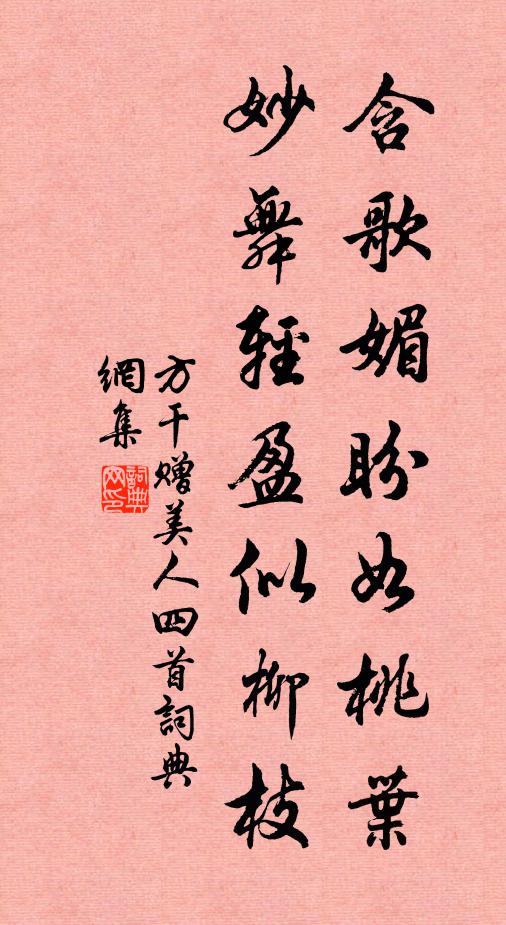 含歌媚盼如桃葉
妙舞輕盈似柳枝
方干贈美人四首詞典
網集
詞典
网印